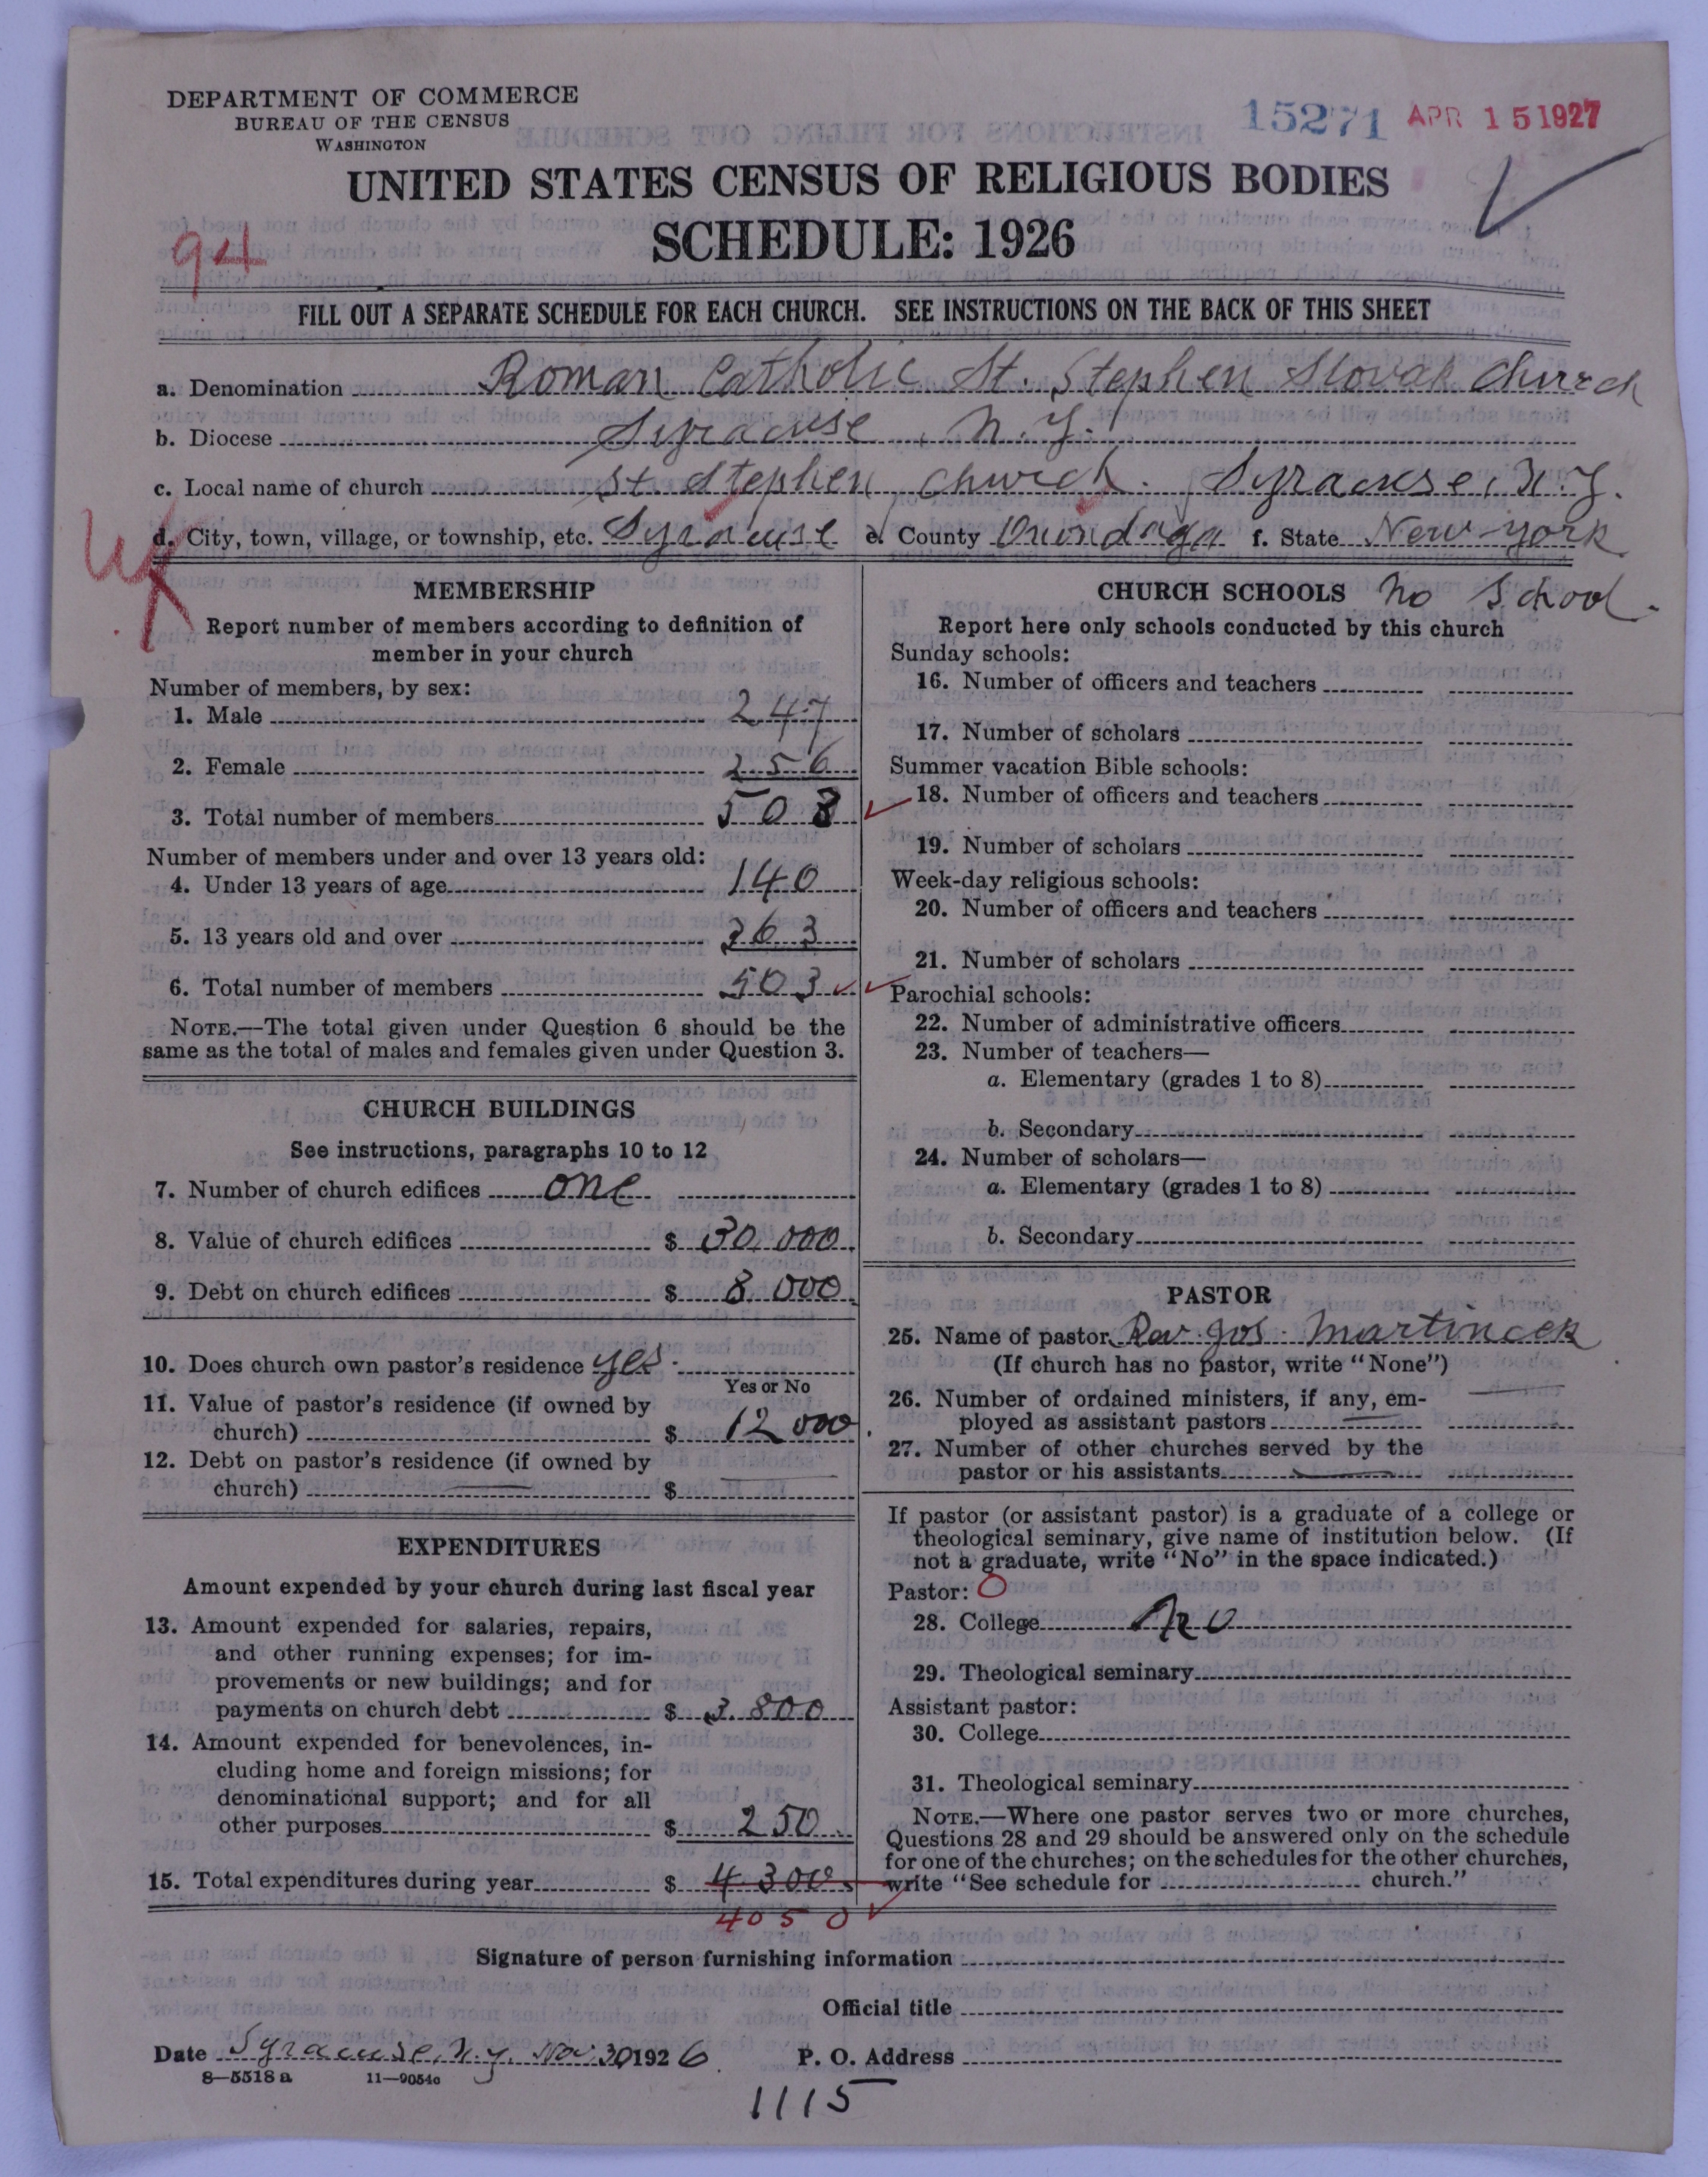 DEPARTMENT OF COMMERCE
BUREAU OF THE CENSUS
WASHINGTON
15271 APR 15 1927
UNITED STATES CENSUS OF RELIGIOUS BODIES
SCHEDULE: 1926
94
FILL OUT A SEPARATE SCHEDULE FOR EACH CHURCH. SEE INSTRUCTIONS ON THE BACK OF THIS SHEET
a. Denomination Roman Catholic St. Stephen Slovak Church
b. Diocese Syracuse, N.Y.
c. Local name of church St. Stephen Church. Syracuse, N.Y.
d. City, town, village, or township, etc. Syracuse e. County Onondaga f. State New York
MEMBERSHIP
Report number of members according to definition of
member in your church
Number of members, by sex:
1. Male 247
2. Female 256
3. Total number of members 503
Number of members under and over 13 years old:
4. Under 13 years of age 140
5. 13 years old and over 363
6. Total number of members 503
NOTE.—The total given under Question 6 should be the
same as the total of males and females given under Question 3.
CHURCH BUILDINGS
See instructions, paragraphs 10 to 12
7. Number of church edifices one
8. Value of church edifices $ 30,000
9. Debt on church edifices $ 8000
10. Does church own pastor's residence yes.
Yes or No
11. Value of pastor's residence (if owned by
church) $ 12000
12. Debt on pastor's residence (if owned by
church) $ —
EXPENDITURES
Amount expended by your church during last fiscal year
13. Amount expended for salaries, repairs,
and other running expenses; for im-
provements or new buildings; and for
payments on church debt $ 3.800
14. Amount expended for benevolences, in-
cluding home and foreign missions; for
denominational support; and for all
other purposes $ 250
15. Total expenditures during year $ 4300
4050
CHURCH SCHOOLS No School.
Report here only schools conducted by this church
Sunday schools:
16. Number of officers and teachers
17. Number of scholars
Summer vacation Bible schools:
18. Number of officers and teachers
19. Number of scholars
Week-day religious schools:
20. Number of officers and teachers
21. Number of scholars
Parochial schools:
22. Number of administrative officers
23. Number of teachers—
a. Elementary (grades 1 to 8)
b. Secondary
24. Number of scholars—
a. Elementary (grades 1 to 8)
b. Secondary
PASTOR
25. Name of pastor Rev. Jos. Martincek
(If church has no pastor, write "None")
26. Number of ordained ministers, if any, em-
ployed as assistant pastors —
27. Number of other churches served by the
pastor or his assistants —
If pastor (or assistant pastor) is a graduate of a college or
theological seminary, give name of institution below. (If
not a graduate, write "No" in the space indicated.)
Pastor: O
28. College No
29. Theological seminary
Assistant pastor:
30. College
31. Theological seminary
NOTE.—Where one pastor serves two or more churches,
Questions 28 and 29 should be answered only on the schedule
for one of the churches; on the schedules for the other churches,
write "See schedule for church."
Signature of person furnishing information
Official title
Date Syracuse, N.y. Nov. 30 1926 P. O. Address
8—5518 a 11—9054c
1115